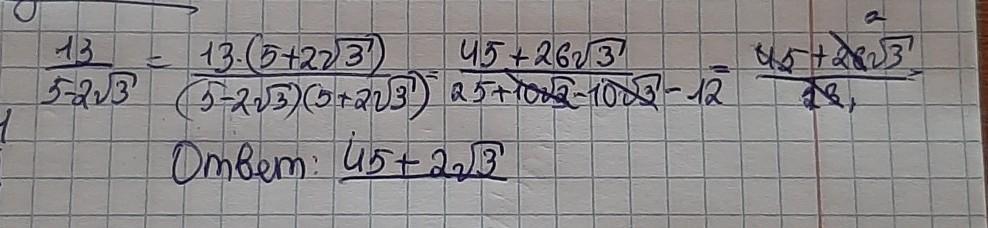 13/(5-2√3) = 13·(5+2√3)/((5-2√3)(5+2√3)) = (45+26√3)/(25+10√2-10√3-12) = (45+26√3)/13, 2 1
Ответ: 45+2√3